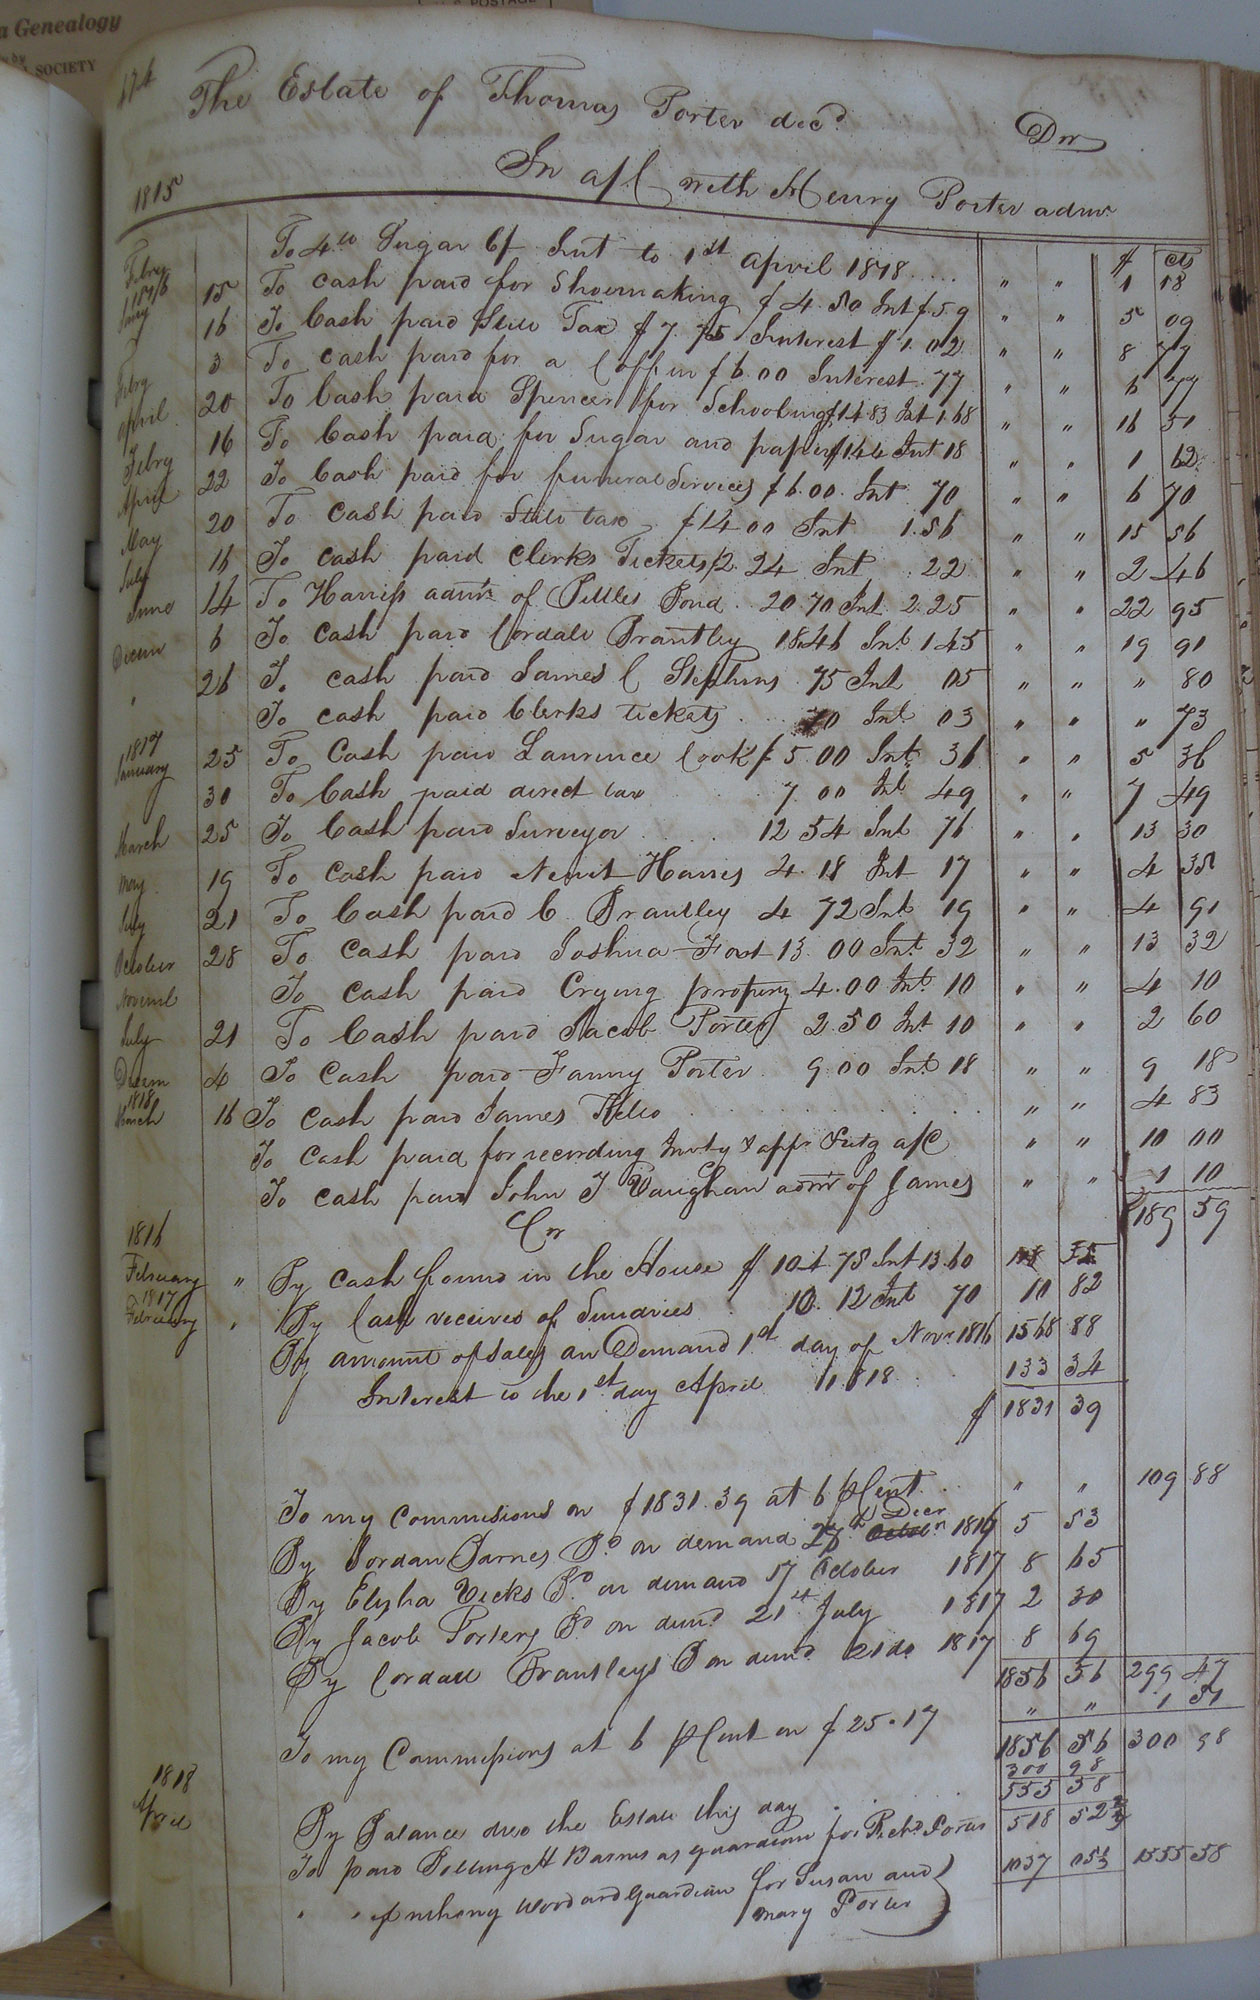 a Genealogy
SOCIETY
POSTAGE
174
The Estate of Thomas Porter decd Dr
In a/c with Henry Porter admr
1815
$ cts
Febry To 4 lb Sugar Int to 1st april 1818 .... " " 1 18
1816 Jany 15 To cash paid for Shoemaking $4.50 Int $.59 " " 5 09
16 To Cash paid State Tax $7.75 Interest $1.02 " " 8 77
Febry 3 To cash paid for a Coffin $6.00 Interest .77 " " 6 77
april 20 To Cash paid Spencer for Schooling $14 83 Int 1.68 " " 16 51
Febry 16 To Cash paid for Sugar and paper $1.44 Int 18 " " 1 62
April 22 To Cash paid for funeral Services $6.00 Int 70 " " 6 70
May 20 To Cash paid State tax $14 00 Int 1.56 " " 15 56
July 16 To cash paid Clerks Tickets $2.24 Int .22 " " 2 46
June 14 To Harriss admr of Pittles Bond 20.70 Int 2.25 " " 22 95
Decem 6 To Cash paid Cordall Brantley 18.46 Int 1.45 " " 19 91
" 26 To cash paid James C Stephens 75 Int 05 " " " 80
To cash paid Clerks tickets 70 Int 03 " " " 73
1817 January 25 To Cash paid Laurence Cook $5.00 Int 36 " " 5 36
30 To Cash paid direct tax 7 00 Int 49 " " 7 49
March 25 To Cash paid Surveyor 12 54 Int 76 " " 13 30
May 19 To cash paid Newit Harris 4.18 Int 17 " " 4 35
July 21 To Cash paid C. Brantley 4 72 Int 19 " " 4 91
October 28 To Cash paid Joshua Fort 13.00 Int 32 " " 13 32
Noveml To cash paid Crying property 4.00 Int 10 " " 4 10
July 21 To Cash paid Jacob Porter 2.50 Int 10 " " 2 60
Decem 4 To Cash paid Fanny Porter 9.00 Int 18 " " 9 18
1818 March 16 To cash paid James " " 4 83
To Cash paid for recording Invty & appr Futg a/c " " 10 00
To cash paid John T Vaughan admr of James " " 1 10
Cr $189 59
1816 February " By cash found in the House $104 75 Int 13.60
1817 February " By Cash received of Sundries 10.12 Int 70 10 82
By amount of Sales on Demand 1st day of Novr 1816 1568 88
Interest to the 1st day April 1818 133 34
$ 1831 39
To my Commissions on $1831.39 at 6 pr Cent " " 109 88
By Jordan Barnes Bd on demand 27th Decr 1816 5 53
By Elisha Vicks Bd on demand 17 October 1817 8 65
By Jacob Porters Bd on demd 21st July 1817 2 30
By Cordall Brantleys B on demd 21 do 1817 8 69
1856 56 299 47
To my Commissions at 6 pr Cent on $25.17 " " 1 51
1856 56 300 98
300 98
1818 April By Balance due the Estate this day 555 58
To paid Bolling H Barnes as guardian for Richd Porter 518 52 2/3
" " Anthony Woodard guardian for Susan and 1037 05 1/3 1555 58
Mary Porter